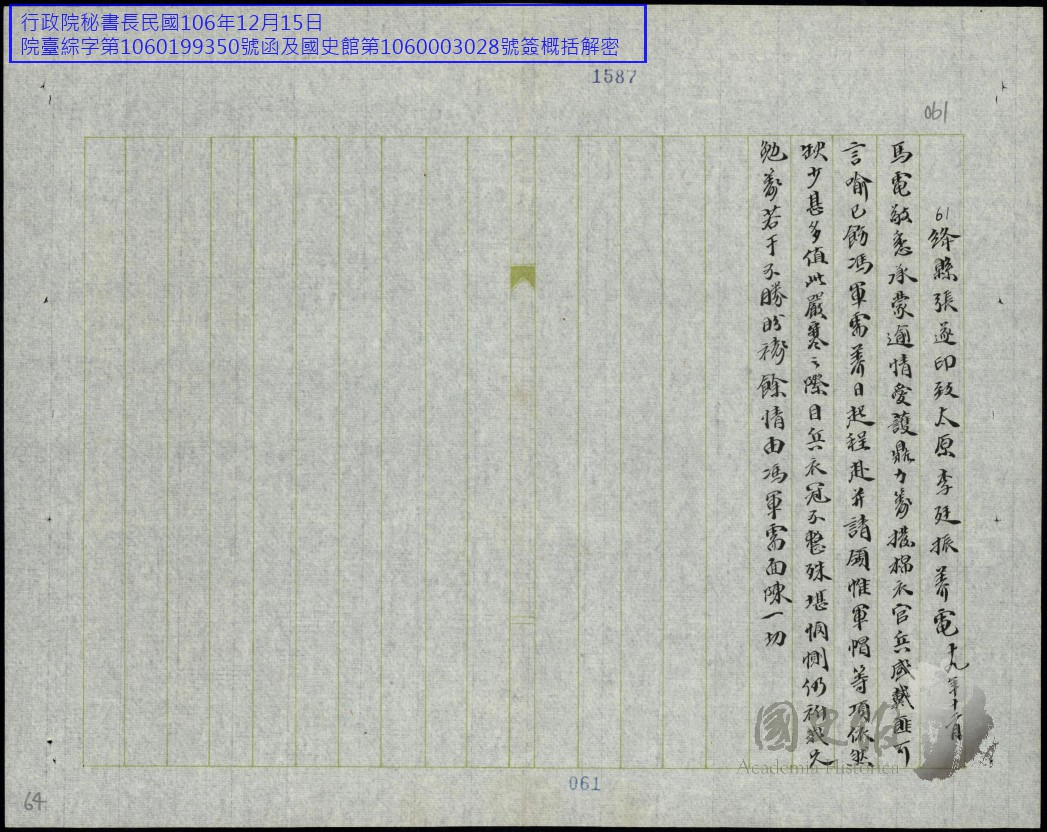 行政院秘書長民國106年12月15日
院臺綜字第1060199350號函及國史館第1060003028號簽概括解密
1587
061
61 絳縣張遂印致太原李廷振養電 十九年十二月
馬電敬悉承蒙逾情愛護鼎力籌撥棉衣官兵感戴匪可
言喻已飭馮軍需養日起程赴并請領惟軍帽等項依然
缺少甚多值此嚴寒之際目兵衣冠不整殊堪憫惻仍祈我兄
勉籌若干不勝盼禱餘情由馮軍需面陳一切
國史館
Academia Historica
061
64